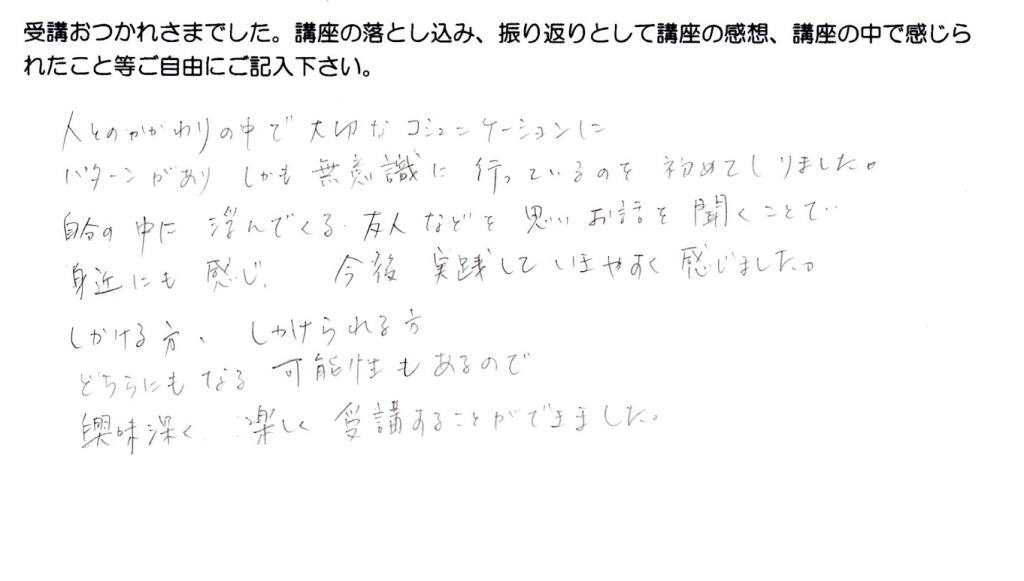 受講おつかれさまでした。講座の落とし込み、振り返りとして講座の感想、講座の中で感じら
れたこと等ご自由にご記入下さい。
人とのかかわりの中で 大切な コミュニケーションに
パターンがあり しかも 無意識に 行っているのを 初めてしりました。
自分の 中に 浮んでくる 友人 などを 思い お話を 聞くことで
身近にも 感じ、 今後 実践して いきやすく 感じました。
しかける方、 しかけられる方
どちらにもなる 可能性もあるので
興味深く 楽しく 受講することができました。